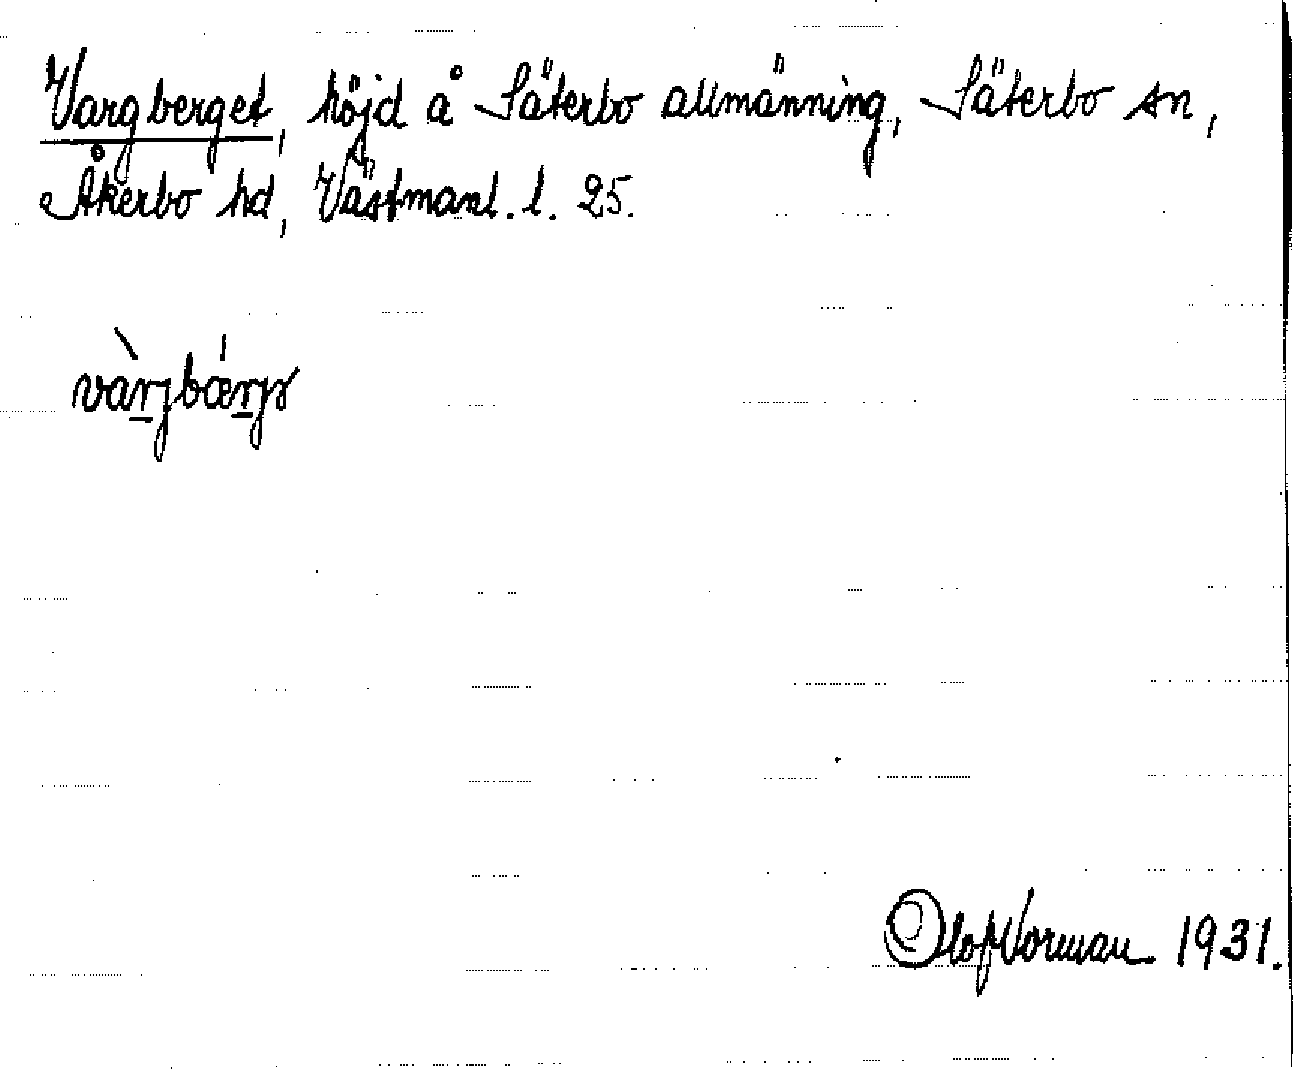 Vargberget, höjd å Säterbo allmänning, Säterbo sn,
Åkerbo hd, Västmanl. l. 25.
Olof Norman 1931.